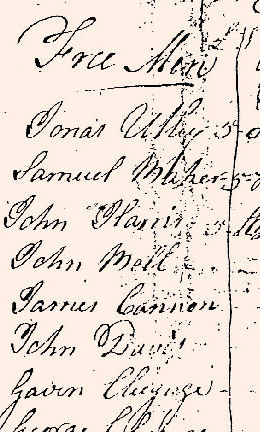 Free Men
Jonas Utley 5-0
Samuel Maher 5-0
John Harris 5
John Mell
James Cannon
John Davis
Gavin
George